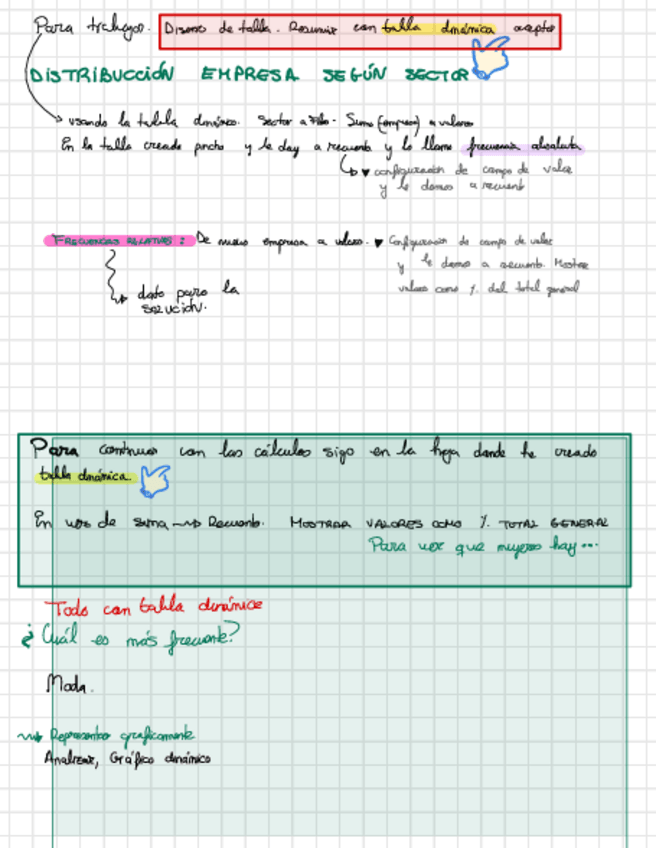 Para trabajar. Diseno de tabla. Resumir con tabla dinámica acepto
DISTRIBUCCIÓN EMPRESA SEGÚN SECTOR
usando la tabla dinámica. Sector a filas. Suma (empresa) a valores
En la tabla creada pincho y le doy a recuento y lo llamo frecuencia absoluta
▼ configuración de campo de valor
y le damos a recuento
FRECUENCIAS RELATIVAS: De nuevo empresa a valores. ▼ Configuración de campo de valor
y le damos a recuento. Mostrar
valores como % del total general
dato para la
solución.
Para continuar con los cálculos sigo en la hoja donde he creado
tabla dinámica.
En vez de suma → Recuento. MOSTRAR VALORES COMO % TOTAL GENERAL
Para ver que mujeres hay...
Todo con tabla dinámica
¿Cuál es más frecuente?
Moda.
Representar graficamente
Analizar, Gráfico dinámico